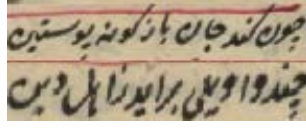 چون کند جان بازکونه پوستین
چند واویلی براید زاهل دین